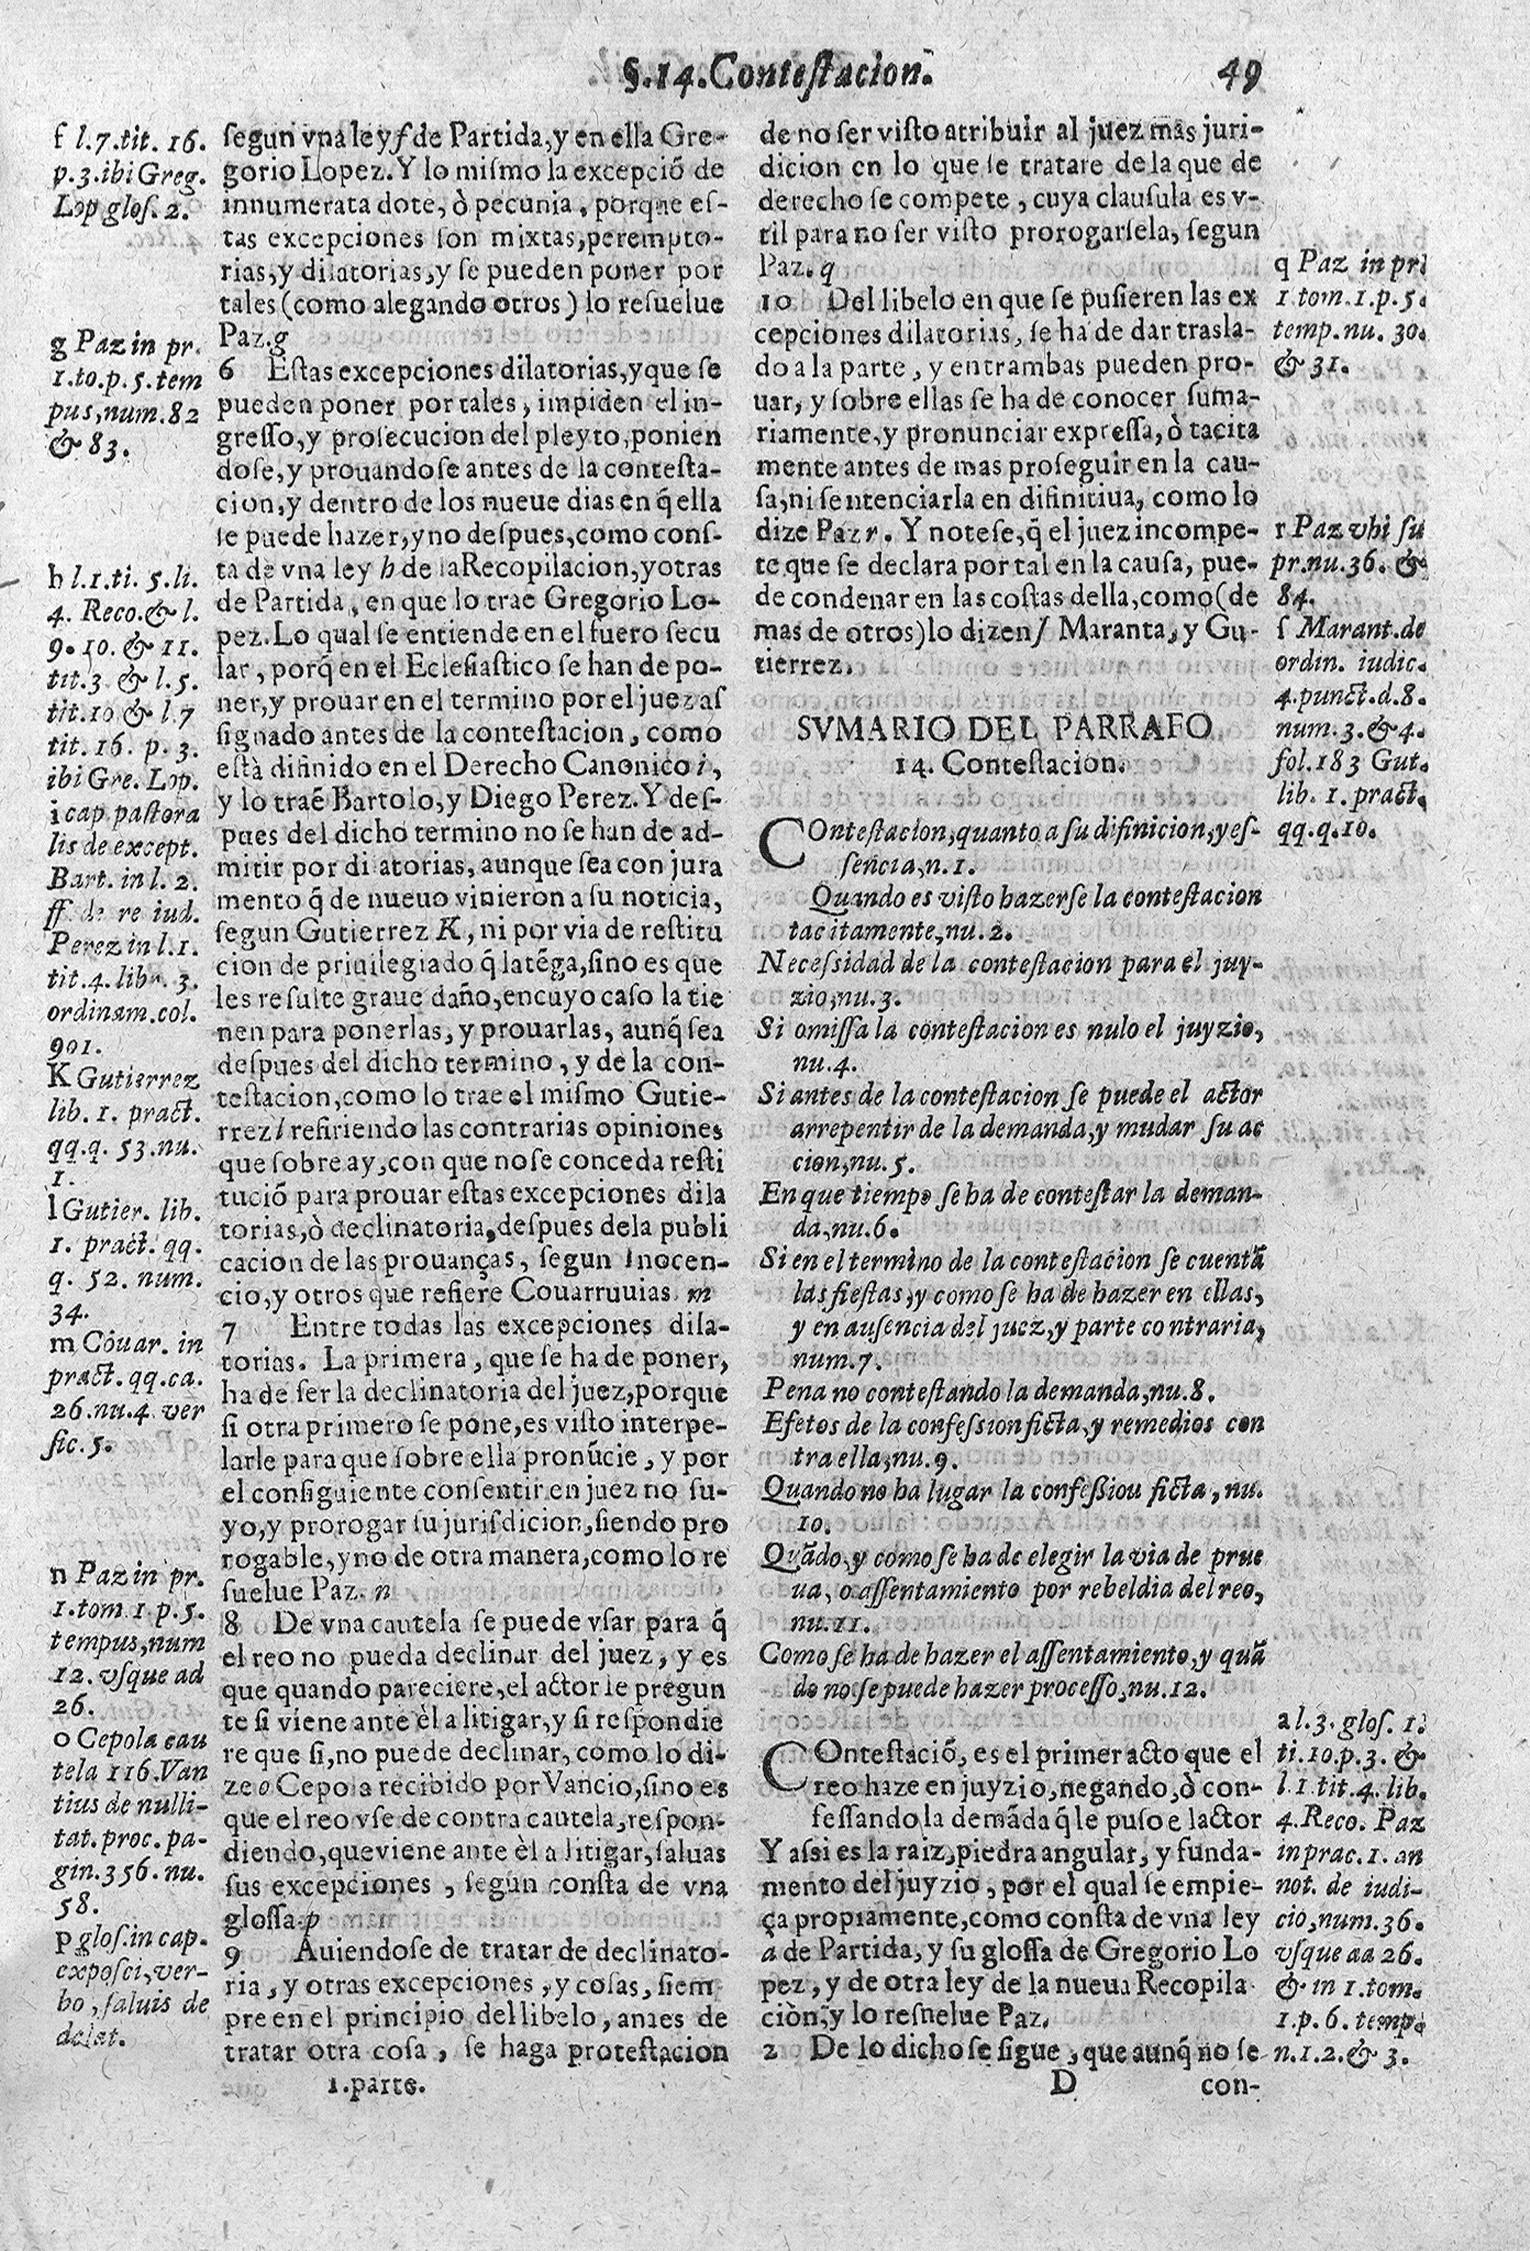 §.14.Contestacion.
49
f l.7.tit. 16.
p.3.ibi Greg.
Lop glos. 2.
g Paz in pr.
1.to.p.5.tem
pus,num.82
& 83.
h l.1.ti. 5.li.
4. Reco.& l.
9.10. & 11.
tit.3 & l.5.
tit.10 & l.7
tit.16. p. 3.
ibi Gre. Lop.
i cap pastora
lis de except.
Bart. in l. 2.
ff. de re iud.
Perez in l.1.
tit.4.libr. 3.
ordinam.col.
901.
K Gutierrez
lib. 1. pract.
qq.q. 53.nu.
1.
l Gutier. lib.
1. pract. qq.
q. 52. num.
34.
m Couar. in
pract.qq.ca.
26.nu.4 ver
sic.5.
n Paz in pr.
1.tom 1.p.5.
tempus,num
12.vsque ad
26.
o Cepola cau
tela 116.Van
tius de nulli-
tat.proc.pa-
gin.356.nu.
58.
p glos.in cap.
exposci,ver-
bo, saluis de
dolat.
segun vna ley f de Partida,y en ella Gre-
gorio Lopez.Y lo mismo la excepciõ de
innumerata dote, ò pecunia, porque es-
tas excepciones son mixtas,perempto-
rias,y dilatorias,y se pueden poner por
tales (como alegando otros) lo resuelue
Paz.g
6 Estas excepciones dilatorias,y que se
pueden poner por tales, impiden el in-
gresso,y prosecucion del pleyto,ponien
dose,y prouandose antes de la contesta-
cion,y dentro de los nueue dias en q̃ ella
se puede hazer,y no despues,como cons-
ta de vna ley h de la Recopilacion,y otras
de Partida, en que lo trae Gregorio Lo-
pez.Lo qual se entiende en el fuero secu
lar, porq̃ en el Eclesiastico se han de po-
ner,y prouar en el termino por el juez as
signado antes de la contestacion, como
està difinido en el Derecho Canonico i,
y lo traẽ Bartolo,y Diego Perez.Y des-
pues del dicho termino no se han de ad-
mitir por dilatorias, aunque sea con jura
mento q̃ de nueuo vinieron a su noticia,
segun Gutierrez K, ni por via de restitu
cion de priuilegiado q̃ la tẽga,sino es que
les resulte graue daño,en cuyo caso la tie
nen para ponerlas, y prouarlas, aunq̃ sea
despues del dicho termino, y de la con-
testacion,como lo trae el mismo Gutie-
rrez l refiriendo las contrarias opiniones
que sobre ay,con que no se conceda resti
tuciõ para prouar estas excepciones dila
torias,ò declinatoria,despues de la publi
cacion de las prouanças, segun Inocen-
cio,y otros que refiere Couarruuias. m
7 Entre todas las excepciones dila-
torias. La primera, que se ha de poner,
ha de ser la declinatoria del juez,porque
si otra primero se pone,es visto interpe-
larle para que sobre ella pronũcie, y por
el consiguiente consentir en juez no su-
yo,y prorogar su jurisdicion,siendo pro
rogable,y no de otra manera,como lo re
suelue Paz. n
8 De vna cautela se puede vsar para q̃
el reo no pueda declinar del juez, y es
que quando pareciere,el actor le pregun
te si viene ante èl a litigar,y si respondie
re que si,no puede declinar,como lo di-
ze o Cepola recibido por Vancio,sino es
que el reo vse de contra cautela,respon-
diendo,que viene ante èl a litigar,saluas
sus excepciones, segun consta de vna
glossa.p
9 Auiendose de tratar de declinato-
ria, y otras excepciones, y cosas, siem
pre en el principio del libelo, antes de
tratar otra cosa, se haga protestacion
1.parte.
de no ser visto atribuir al juez mas juri-
dicion en lo que se tratare de la que de
derecho se compete, cuya clausula es v-
til para no ser visto prorogarsela, segun
Paz.q
10 Del libelo en que se pusieren las ex
cepciones dilatorias, se ha de dar trasla-
do a la parte, y entrambas pueden pro-
uar, y sobre ellas se ha de conocer suma-
riamente,y pronunciar expressa, ò tacita
mente antes de mas proseguir en la cau-
sa,ni sentenciarla en difinitiua, como lo
dize Paz r. Y notese,q̃ el juez incompe-
te que se declara por tal en la causa, pue-
de condenar en las costas della,como(de
mas de otros)lo dizen s Maranta, y Gu-
tierrez.
SVMARIO DEL PARRAFO
14. Contestacion.
COntestacion,quanto a su difinicion,y es-
sencia,n.1.
Quando es visto hazerse la contestacion
tacitamente,nu.2.
Necessidad de la contestacion para el juy-
zio,nu.3.
Si omissa la contestacion es nulo el juyzio,
nu.4.
Si antes de la contestacion se puede el actor
arrepentir de la demanda,y mudar su ac
cion,nu.5.
En que tiempo se ha de contestar la deman-
da,nu.6.
Si en el termino de la contestacion se cuentã
las fiestas,y como se ha de hazer en ellas,
y en ausencia del juez,y parte contraria,
num.7.
Pena no contestando la demanda,nu.8.
Efetos de la confession ficta,y remedios con
tra ella,nu.9.
Quando no ha lugar la confessiou ficta, nu.
10.
Quãdo,y como se ha de elegir la via de prue
ua, o assentamiento por rebeldia del reo,
nu.11.
Como se ha de hazer el assentamiento,y quã
do no se puede hazer processo,nu.12.
COntestaciõ, es el primer acto que el
reo haze en juyzio,negando,ò con-
fessando la demãda q̃ le puso el actor
Y assi es la raiz,piedra angular, y funda-
mento del juyzio, por el qual se empie-
ça propiamente,como consta de vna ley
a de Partida, y su glossa de Gregorio Lo
pez, y de otra ley de la nueua Recopila
ciòn, y lo resuelue Paz.
2 De lo dicho se sigue, que aunq̃ no se
D
con-
q Paz in pr
1.tom.1.p.5.
temp.nu. 30.
& 31.
r Paz vbi su
pr.nu.36. &
84.
s Marant.de
ordin. iudic.
4.punct.d.8.
num.3.& 4.
fol.183 Gut.
lib. 1. pract.
qq.q.10.
a l.3. glos. 1.
ti.10.p.3. &
l.1 tit.4. lib.
4.Reco. Paz
in prac.1. an
not. de iudi-
cio,num.36.
vsque aa 26.
& in 1.tom.
1.p.6. temp.
n.1.2.& 3.